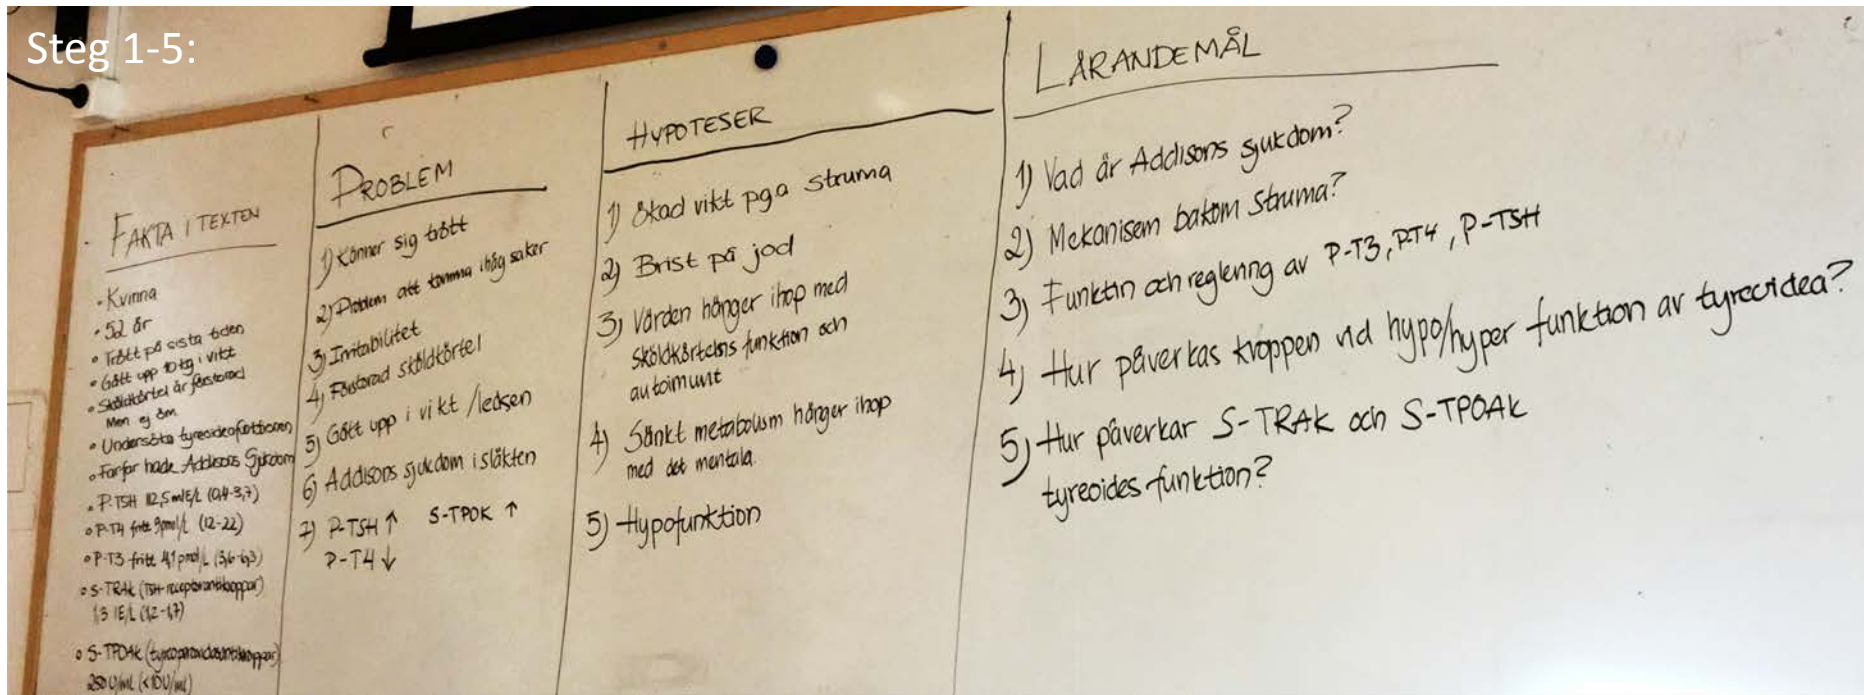 Steg 1-5:
FAKTA I TEXTEN
• Kvinna
• 52 år
• Trött på sista tiden
• Gått upp 10 kg i vikt
• Sköldkörtel är förstorad
Men ej öm
• Undersöka tyreoideafunktionen
• Farfar hade Addisons Sjukdom
• P-TSH 12,5 mIE/L (0,4-3,7)
• P-T4 fritt 9pmol/L (12-22)
• P-T3 fritt 4,1 pmol/L (3,6-6,3)
• S-TRAK (TSH-receptorantikroppar)
1,3 IE/L (1,2-1,7)
• S-TPOAK (tyreoperoxidasantikroppar)
250 U/mL (<10U/mL)
PROBLEM
1) Känner sig trött
2) Problem att komma ihåg saker
3) Irritabilitet
4) Förstorad sköldkörtel
5) Gått upp i vikt /ledsen
6) Addisons sjukdom i släkten
7) P-TSH ↑ S-TPOK ↑
P-T4 ↓
HYPOTESER
1) Ökad vikt pga struma
2) Brist på jod
3) Värden hänger ihop med
sköldkörtelns funktion och
autoimunt
4) Sänkt metabolism hänger ihop
med det mentala.
5) Hypofunktion
LÄRANDEMÅL
1) Vad är Addisons sjukdom?
2) Mekanisem bakom struma?
3) Funktin och reglering av P-T3, P-T4, P-TSH
4) Hur påverkas kroppen vid hypo/hyper funktion av tyreoidea?
5) Hur påverkar S-TRAK och S-TPOAK
tyreoides funktion?